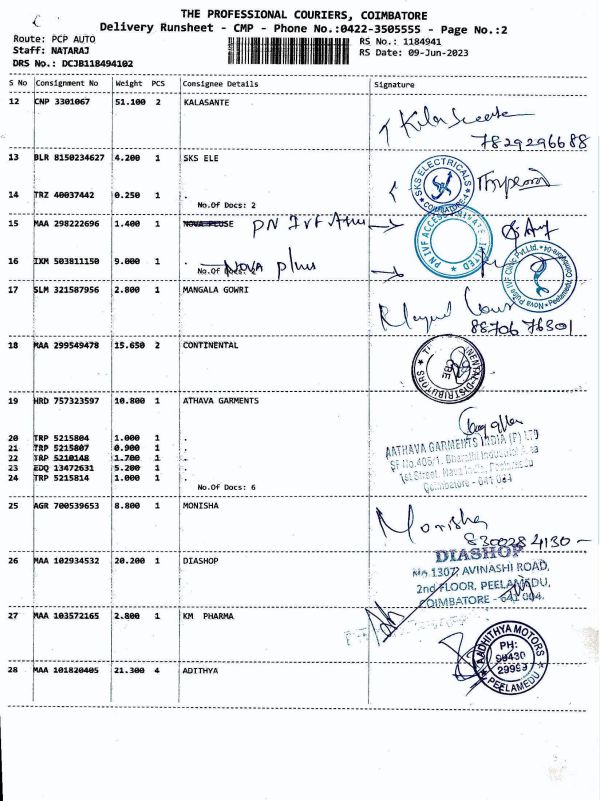 THE PROFESSIONAL COURIERS, COIMBATORE
Delivery Runsheet - CMP - Phone No.:0422-3505555 - Page No.:2
Route: PCP AUTO
RS No.: 1184941
Staff: NATARAJ
RS Date: 09-Jun-2023
DRS No.: DCJB118494102
S No Consignment No Weight PCS Consignee Details Signature
12 CNP 3301067 51.100 2 KALASANTE
7829296688
13 BLR 8150234627 4.200 1 SKS ELE
SKS ELECTRICALS
COIMBATORE-4
14 TRZ 40037442 0.250 1 .
No.Of Docs: 2
15 MAA 298222696 1.400 1 NOVA PLUSE PN IVF
PN IVF ACCESS PRIVATE LIMITED
16 IXM 503811150 9.000 1 . NOVA plus
No.Of Docs: 2
Nova Pulse IVF Clinic Pvt.Ltd. Peelamedu, Coimbatore-4
17 SLM 321587956 2.800 1 MANGALA GOWRI
88706 76301
18 MAA 299549478 15.650 2 CONTINENTAL
CONTINENTAL DISTRIBUTORS
CBE
19 HRD 757323597 10.800 1 ATHAVA GARMENTS
20 TRP 5215804 1.000 1 .
21 TRP 5215807 0.900 1 .
22 TRP 5210148 1.700 1 .
23 EDQ 13472631 5.200 1 .
24 TRP 5215814 1.000 1 .
No.Of Docs: 6
AATHAVA GARMENTS INDIA (P) LTD
SF No.405/1, Bharathi Industrial Area
1st Street, Nava India, Peelamedu
Coimbatore - 641 004
25 AGR 700539653 8.800 1 MONISHA
Monisha
8300284130
26 MAA 102934532 20.200 1 DIASHOP
DIASHOP
No.1307, AVINASHI ROAD,
2nd FLOOR, PEELAMEDU,
COIMBATORE - 641 004.
27 MAA 103572165 2.800 1 KM PHARMA
28 MAA 101820405 21.300 4 ADITHYA
AANDHITHYA MOTORS
PH:
99430
29993
PEELAMEDU